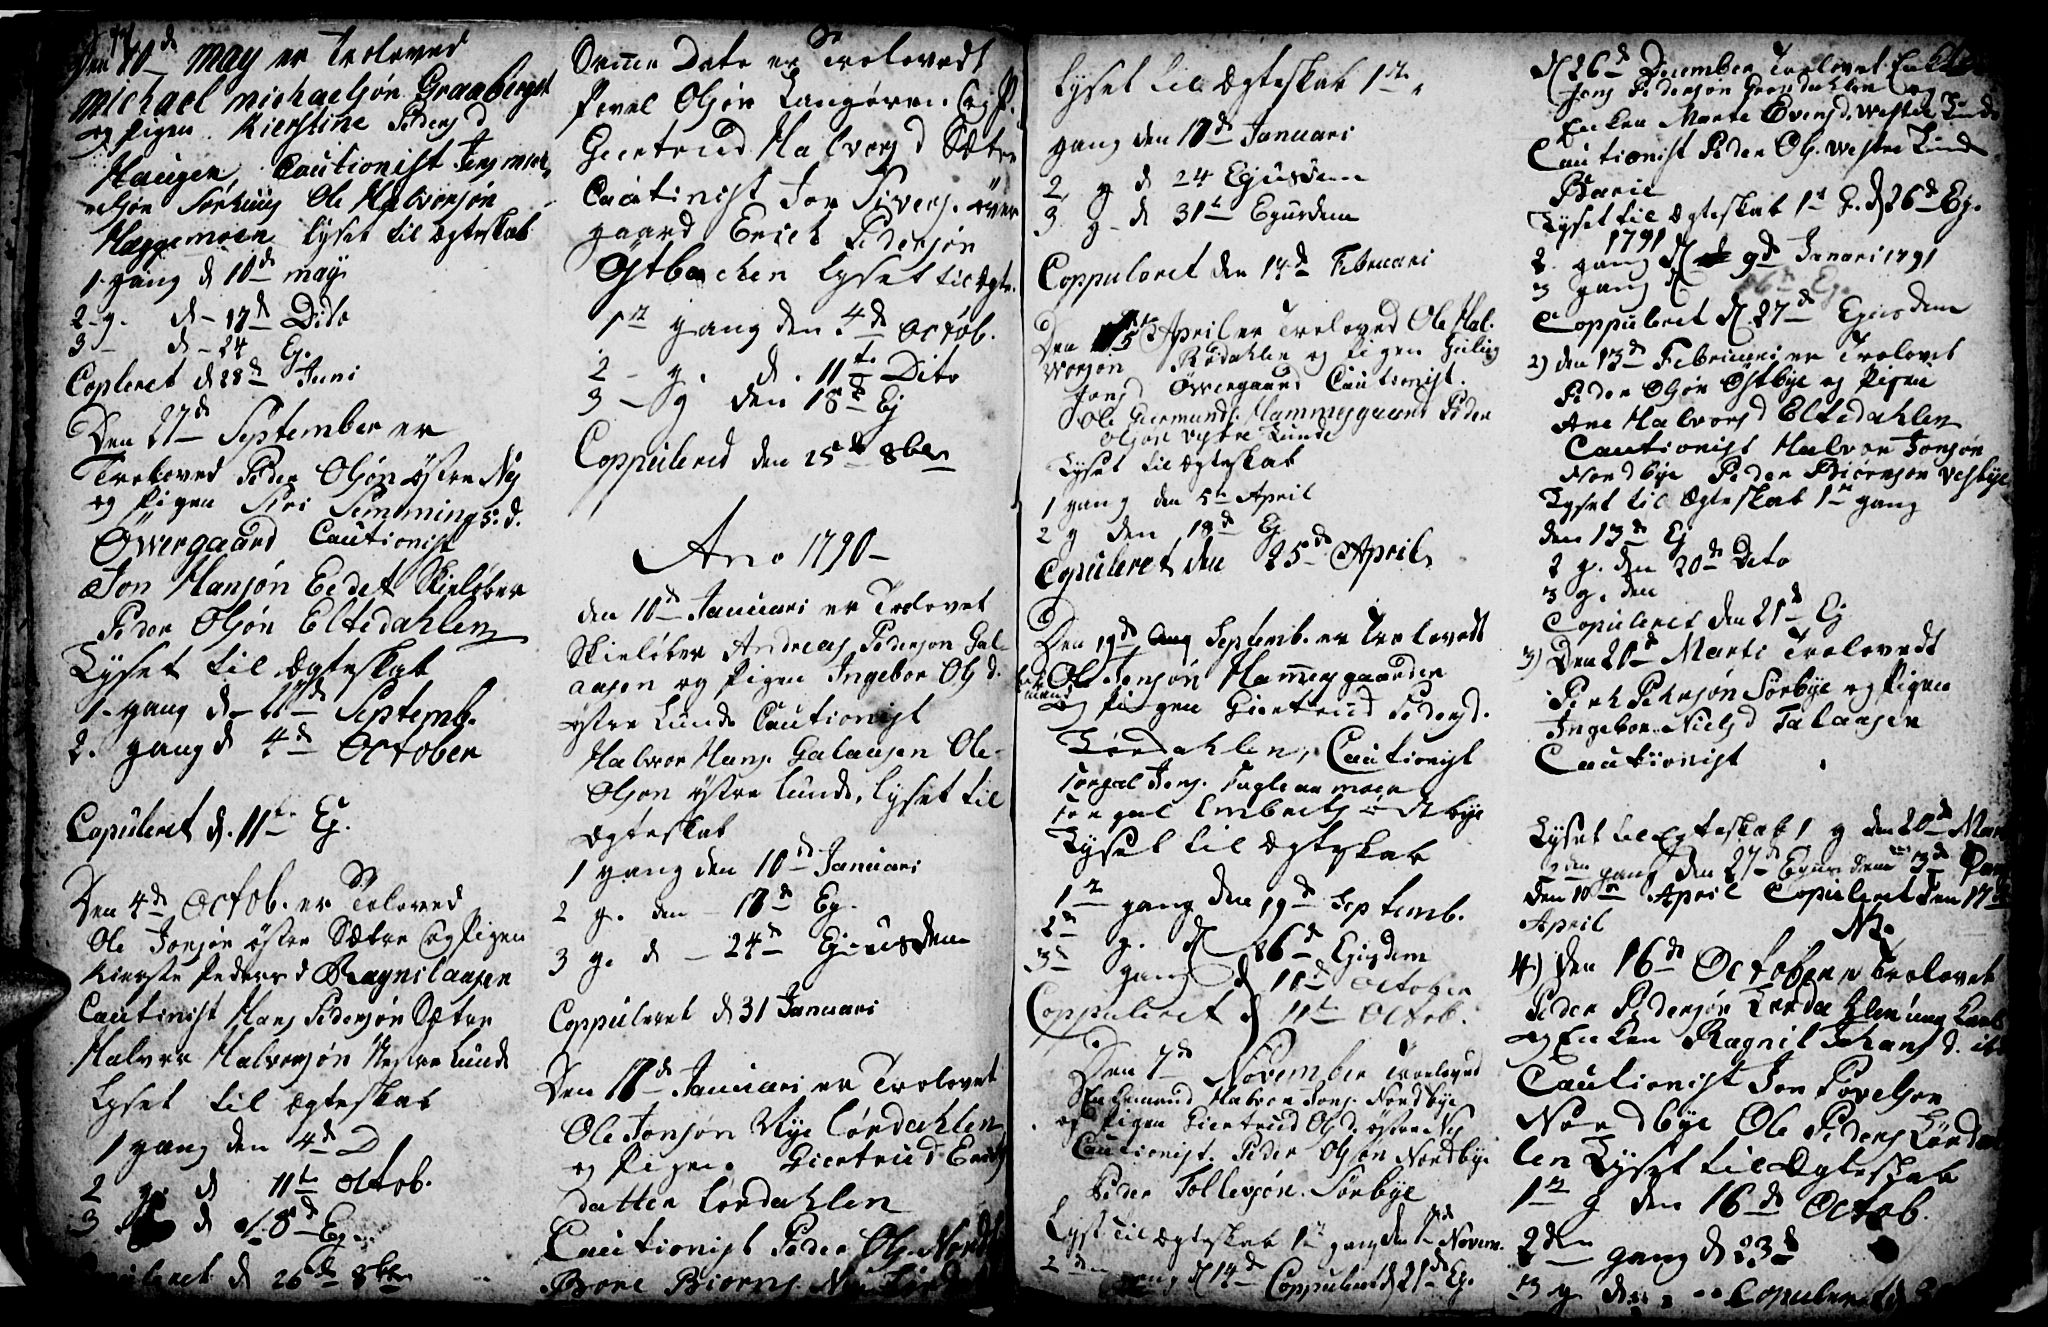 Den 10de May er Troloved
Michael Michaelsøn Graaberget
og Pigen Kierstine Peders d
Haugen Cautionist Jens Mich
elsøn Sørhuus Ole Halvorsøn
Haggemoen lyset til ægteskab
1. gang d 10de May
2 g. d 17de Dito
3 - d - 24 Ej.
Copleret d 28de Juni
Den 27de September er
Troloved Peder Olsøn østre Nej
og Pigen Siri Semmings. d.
Øvergaard Cautionist
Jon Hansøn Eedet Skieløber
Peder Olsøn Eltedahlen
Lyset til Ægteskab
1. gang d 27de Septemb.
2. gang d 4de October
Copuleret d. 11te Ej.
Den 4de Octob. er Troloved
Ole Jonsøn østre Sætre og Pigen
Kierste Peders d Ragnilaasen
Cautinist Hans Pedersøn Sætre
Halvor Halvorsøn Vestre Lunde
Lyset til ægteskab
1 gang den 4de D
2 g. d 11te Octob.
3 d 18de Ej.
Copuleret d 26de 8ber
Samme Dato er Trolovedt
Povel Olsøn Langøren og P.
Giertrud Halvors d Sætre
Cautinist Jon Sivers. over
gaard Erich Pedersøn
Østbachen lyset til ægte.
1te gang den 4de Octob.
2 - g. d. 11te Dito
3 - g den 18de Ej
Coppuleret den 25de 8ber
Ano 1790
den 10de Januari er Trolovet
Skieløber Andreas Pedersøn Gal
aasen og Pigen Ingebor Ols d.
østre Lunde Cautionist
Halvor Hans. Galaasen Ole
Olsøn østre Lunde, lyset til
Ægteskab
1 gang den 10de Januari
2 g. den - 17de Ej.
3 g. d - 24de Ejusdem
Coppuleret d 31 Januari
Den 17de Januari er Trolovet
Ole Jonsøn Nye Lørdahlen
og Pigen Giertrud Erichs
datter Lørdahlen
Cautionist Peder Ols. Nordb
Baare Biørns.
Lyset til Ægteskab 1te
gang den 17de Januari
2 g d 24 Ejusdem
3 g d 31te Ejusdem
Coppuleret den 14de Februari
Den 5te April er Troloved Ole Hal.
vorsøn Rødahlen og Pigen Guling
Jons d Øvergaard Cautionist.
Ole Giermunds. Hammersgaard Peder
Olsøn vestre Lunde
Lyset til ægteskab
1 gang den 5te April
2 g den 18de Ej
Copuleret den 25de April
Den 19de Septemb. er Trolovedt
Ole Jonsøn Hammersgaarden
og Pigen Giertrud Peders d.
Lørdahlen, Cautionist
Torgal Jens. Fugleaamoen
Torgal Embrets. Østbye
Lyset til Ægteskab
1te gang den 19de Septemb.
2de g. d 26de Ejusdem
3de gang d 10de October
Coppuleret d 11te Octob.
Den 7de November Troloved
Enkemand Halvor Jons. Nordbye
og Pigen Giertrud Ols d. østre Nej
Cautionist. Peder Olsøn Nordbye
Peder Tollevsøn Sørbye
Lyst til ægteskab 1te gang den 7de Novem.
2den gang d 14de Coppuleret d 21de Ej.
d 26de December Trolovet Enkem
Jens Pedersøn Grøndahlen og
Enken Marte Evens d. Westre Lunde
Cautionist Peder Ols. Westre Lunde
Lyset til ægteskab 1te g. d 26de Ej.
1791
2. gang d 9de Januari 1791
3 gang d 16de Ej.
Coppuleret d 27de Ejusdem
2) den 13de Februari er Trolovet
Peder Olsøn Østbye og Pigen
Ane Halvors d Eltedahlen
Cautionist Halvor Jonsøn
Nordbye Peder Biørnsøn Vestbye
Lyset til Ægteskab 1te gang
den 13de Ej
2 g. den 20de Dito
3 g. den
Copuleret den 21de Ej
3) Den 20de Marti Trolovedt
Perh Pehrsøn Sørbye og Pigen
Ingebor Niels d Galaasen
Cautionist
Lyset til Egteskab 1 g den 20de Marti
2den gang den 27de Ejusdem 3de Gang
den 10de April Copuleret den 17de
April
No.
4) Den 16de October er Trolovet
Peder Pedersøn Lørdahlen ung Karl
og Enken Ragnil Johans d. it
Cautionist Jon Povelsøn
Nordbye Ole Peders Lørdah
len Lyset til Ægteskab
1te g den 16de Octob.
2den gang d 23de
3 g den Copuleret d 30